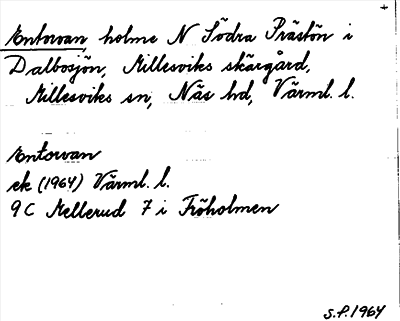 Entorvan, holme N Södra Prästön i
Dalbosjön, Millesviks skärgård,
Millesviks sn, Näs hd, Värml. l.
Entorvan
ek (1964) Värml. l.
9C Mellerud 7 i Fröholmen
S.P. 1964